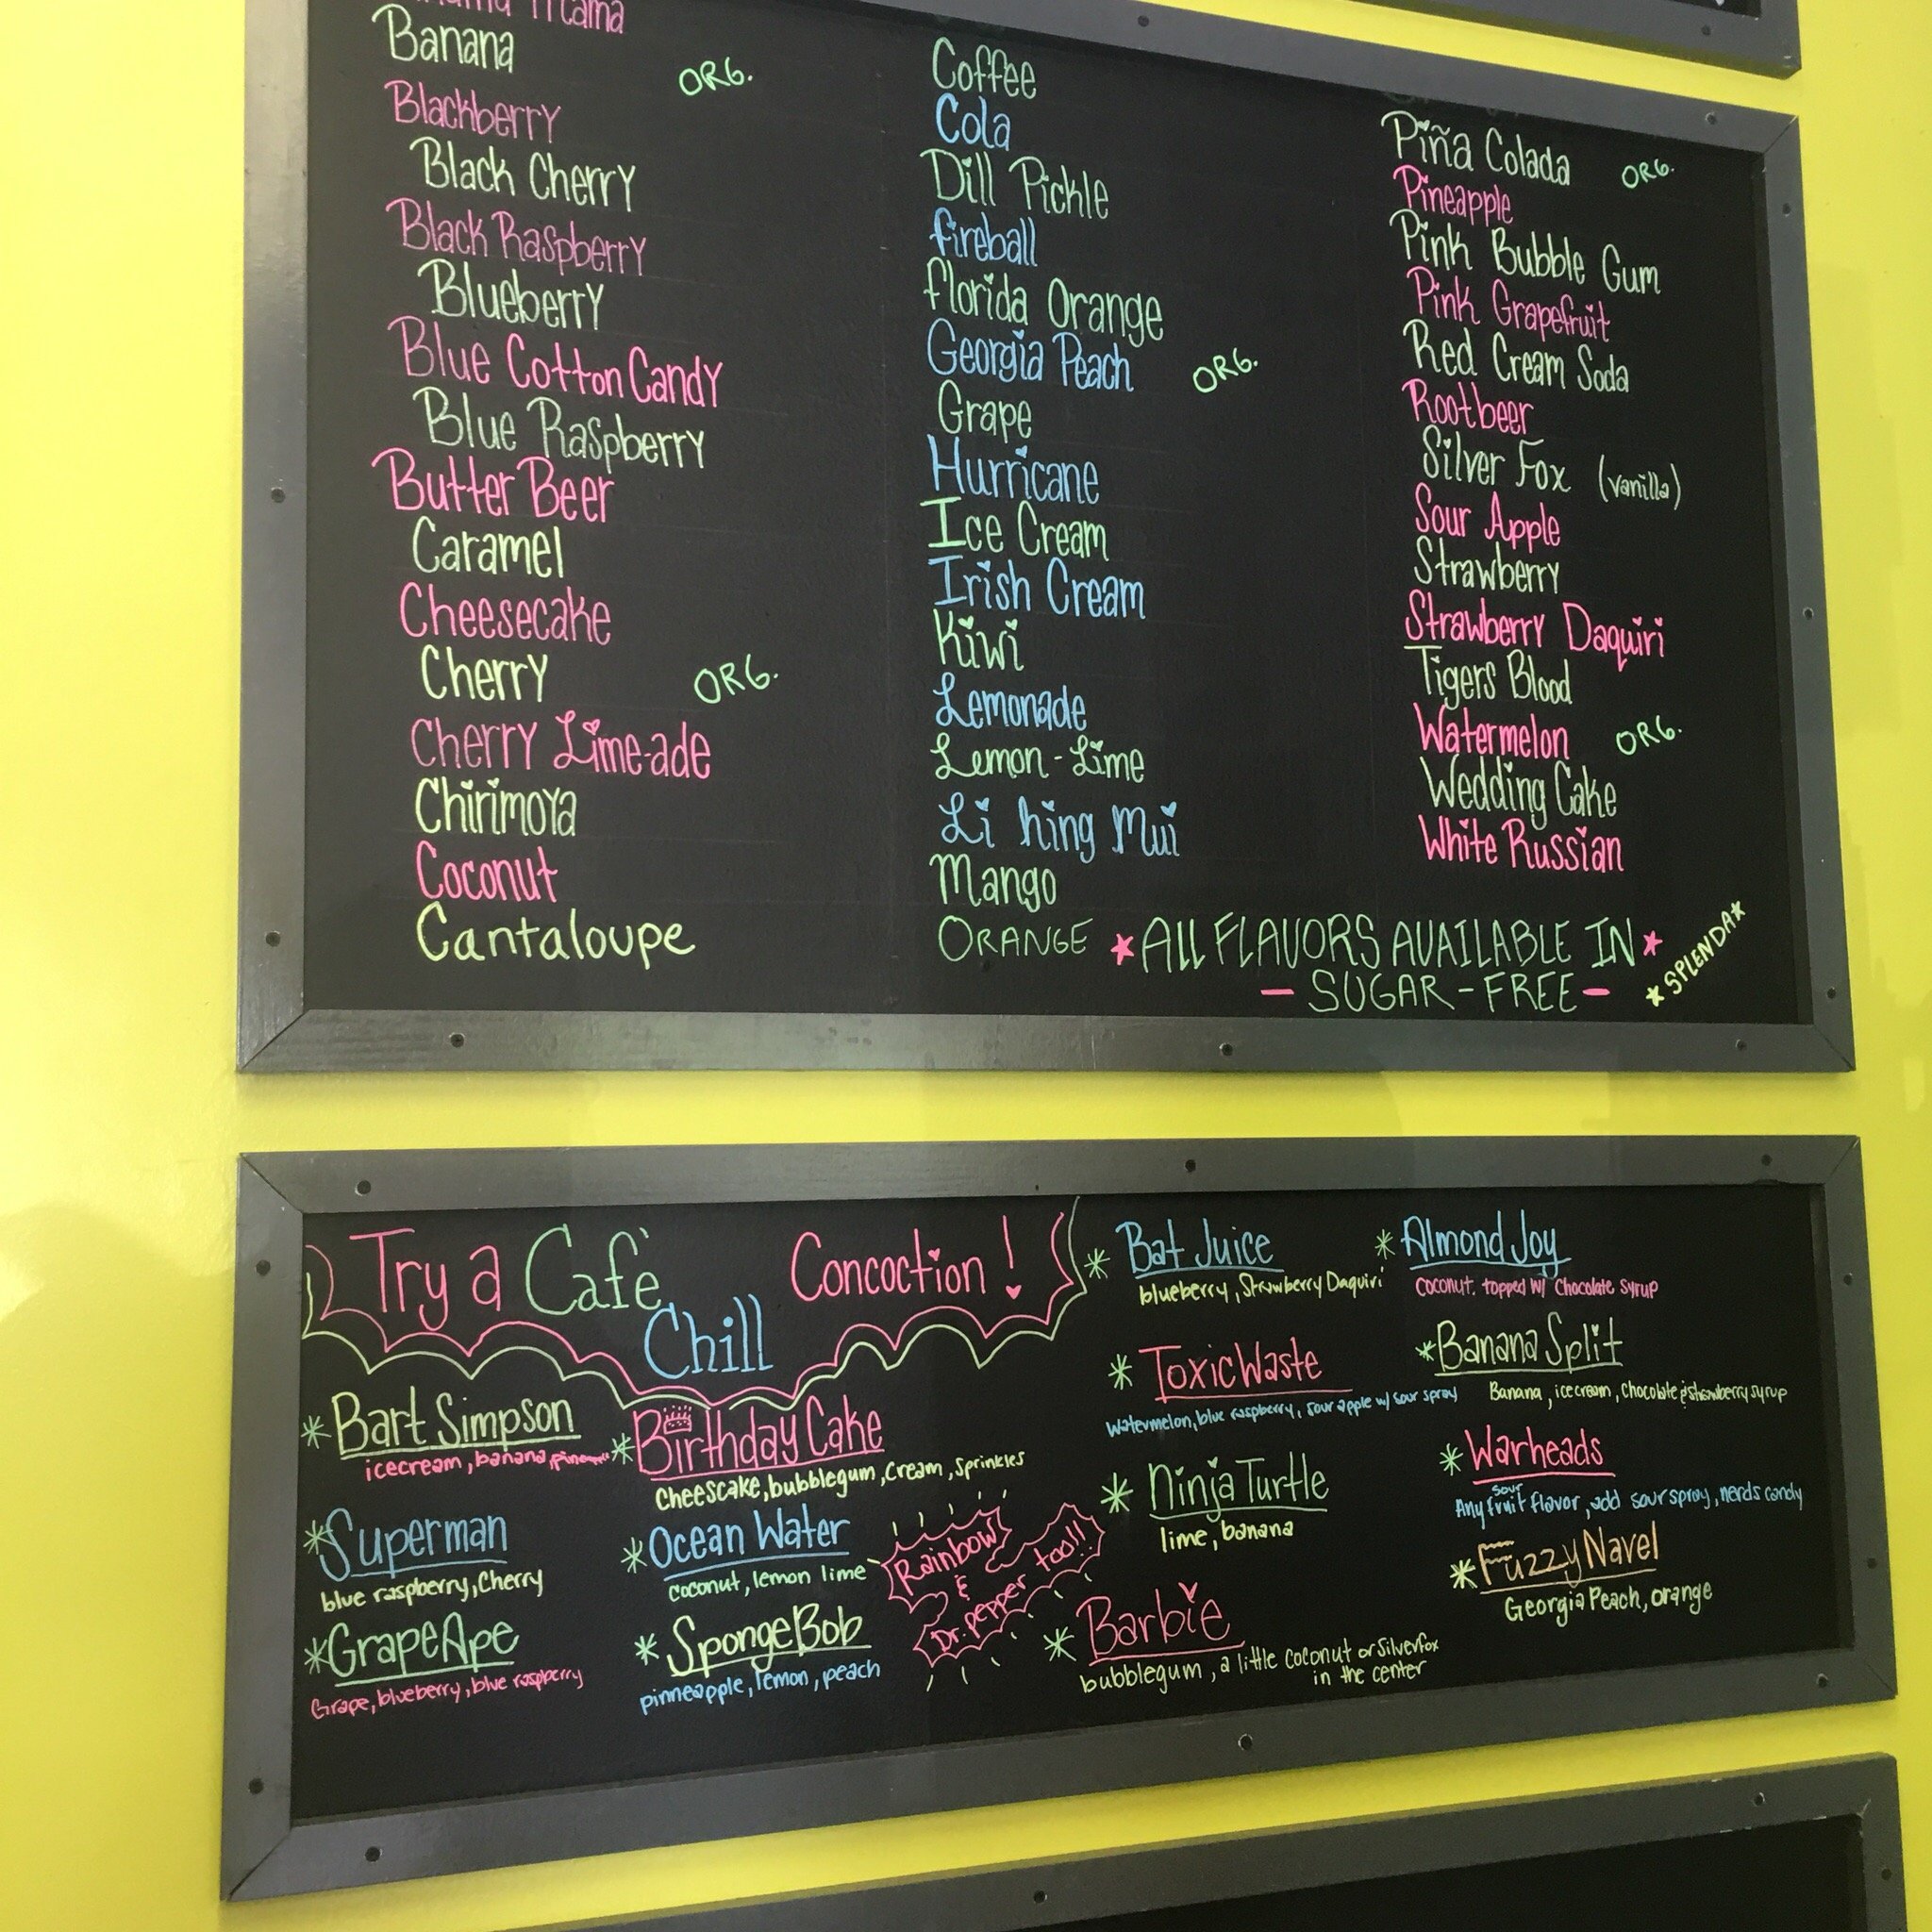 Banana ORG.
Blackberry
Black Cherry
Black Raspberry
Blueberry
Blue Cotton Candy
Blue Raspberry
Butter Beer
Caramel
Cheesecake
Cherry ORG.
Cherry Lime-ade
Chirimoya
Coconut
Cantaloupe
Coffee
Cola
Dill Pickle
fireball
florida Orange
Georgia Peach ORG.
Grape
Hurricane
Ice Cream
Irish Cream
Kiwi
Lemonade
Lemon-Lime
Li hing Mui
Mango
ORANGE
Piña Colada ORG.
Pineapple
Pink Bubble Gum
Pink Grapefruit
Red Cream Soda
Rootbeer
Silver Fox (vanilla)
Sour Apple
Strawberry
Strawberry Daquiri
Tigers Blood
Watermelon ORG.
Wedding Cake
White Russian
*ALL FLAVORS AVAILABLE IN*
- SUGAR-FREE -
*SPLENDA*
Try a Cafè
Chill
Concoction!
*Bart Simpson
icecream, banana,
*Superman
blue raspberry, Cherry
*Grape Ape
Grape, blueberry, blue raspberry
*Birthday Cake
Cheescake, bubblegum, cream, sprinkles
*Ocean Water
coconut, lemon lime
*SpongeBob
pinneapple, lemon, peach
Rainbow
&
Dr. pepper too!!
*Bat Juice
blueberry, Strawberry Daquiri
*Toxic Waste
Watermelon, blue raspberry, sour apple w/ sour spray
*Ninja Turtle
lime, banana
*Barbie
bubblegum, a little coconut or Silverfox
in the center
*Almond Joy
Coconut. topped w/ Chocolate Syrup
*Banana Split
Banana, icecream, Chocolate & strawberry syrup
*Warheads
sour
Any fruit flavor, add sour spray, nerds candy
*Fuzzy Navel
Georgia Peach, orange